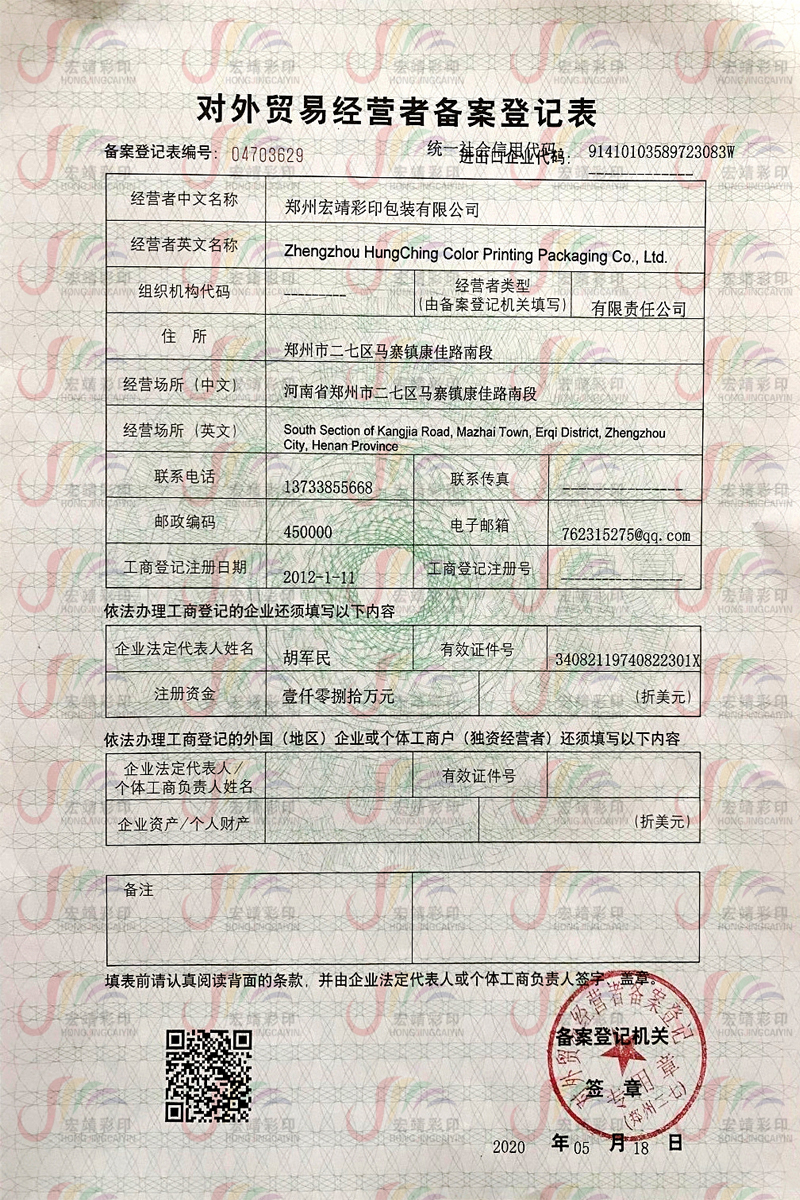 对外贸易经营者备案登记表
备案登记表编号: 04703629
统一社会信用代码:
进出口企业代码: 91410103589723083W
-------------
经营者中文名称 郑州宏靖彩印包装有限公司
经营者英文名称 Zhengzhou HungChing Color Printing Packaging Co., Ltd.
组织机构代码 --------- 经营者类型 (由备案登记机关填写) 有限责任公司
住 所 郑州市二七区马寨镇康佳路南段
经营场所 (中文) 河南省郑州市二七区马寨镇康佳路南段
经营场所 (英文) South Section of Kangjia Road, Mazhai Town, Erqi District, Zhengzhou
City, Henan Province
联系电话 13733855668 联系传真 -----------------
邮政编码 450000 电子邮箱 762315275@qq.com
工商登记注册日期 2012-1-11 工商登记注册号 -----------------
依法办理工商登记的企业还须填写以下内容
企业法定代表人姓名 胡军民 有效证件号 34082119740822301X
注册资金 壹仟零捌拾万元 (折美元)
依法办理工商登记的外国（地区）企业或个体工商户（独资经营者）还须填写以下内容
企业法定代表人/
个体工商负责人姓名 有效证件号
企业资产/个人财产 (折美元)
备注
填表前请认真阅读背面的条款，并由企业法定代表人或个体工商负责人签字、盖章。
对外贸易经营者备案登记
备案登记机关
专用章
签 章
(郑州二七)
2020 年 05 月 18 日
宏靖彩印
HONGJINGCAIYIN